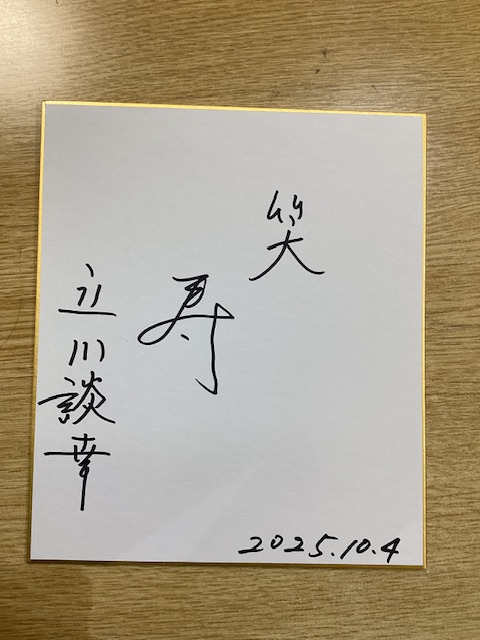 笑
寿
立川談幸
2025.10.4